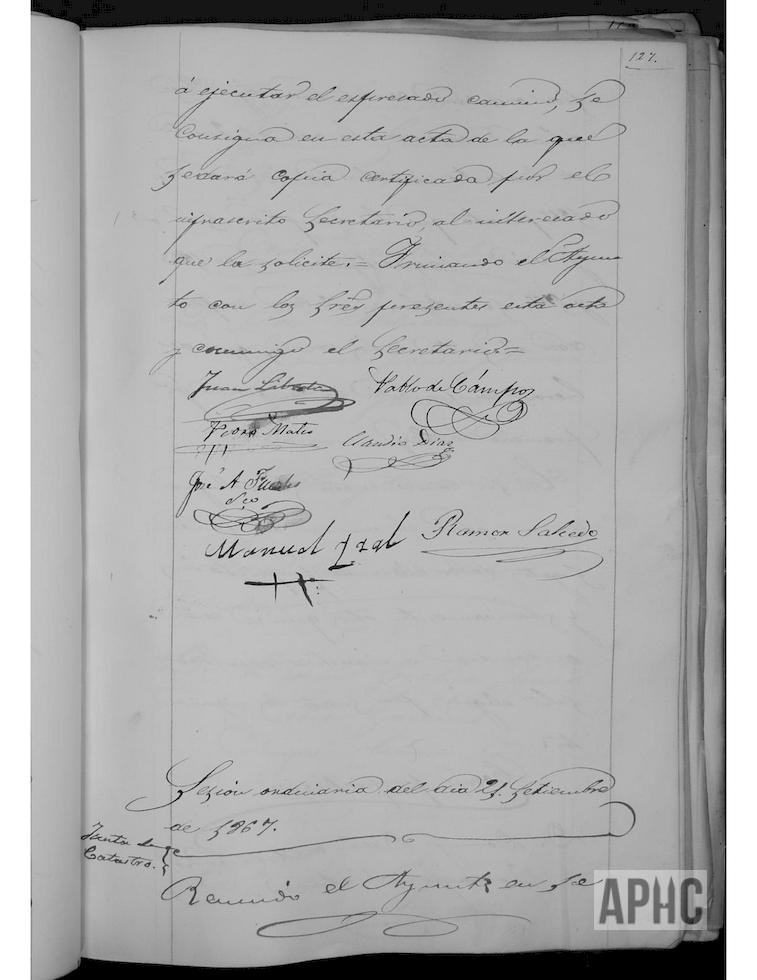 127.
á ejecutar el espresado camino, se
Consigna en esta acta de la que
se dará copia certificada por el
infrascrito Secretario, al interesado
que la solicite,= Firmando el Ayun
to con los Sres presentes esta acta
y conmigo el Secretario,=
Juan Pablo de Campos
Pedro Mateo Claudio Diaz
José A. Fuertes
Sco
Manuel Ramon Salcedo
Sesion ordinaria del dia 21 Setiembre
de 1867.
Junta de
Catastro.
Reunido el Ayunto en se
APHC